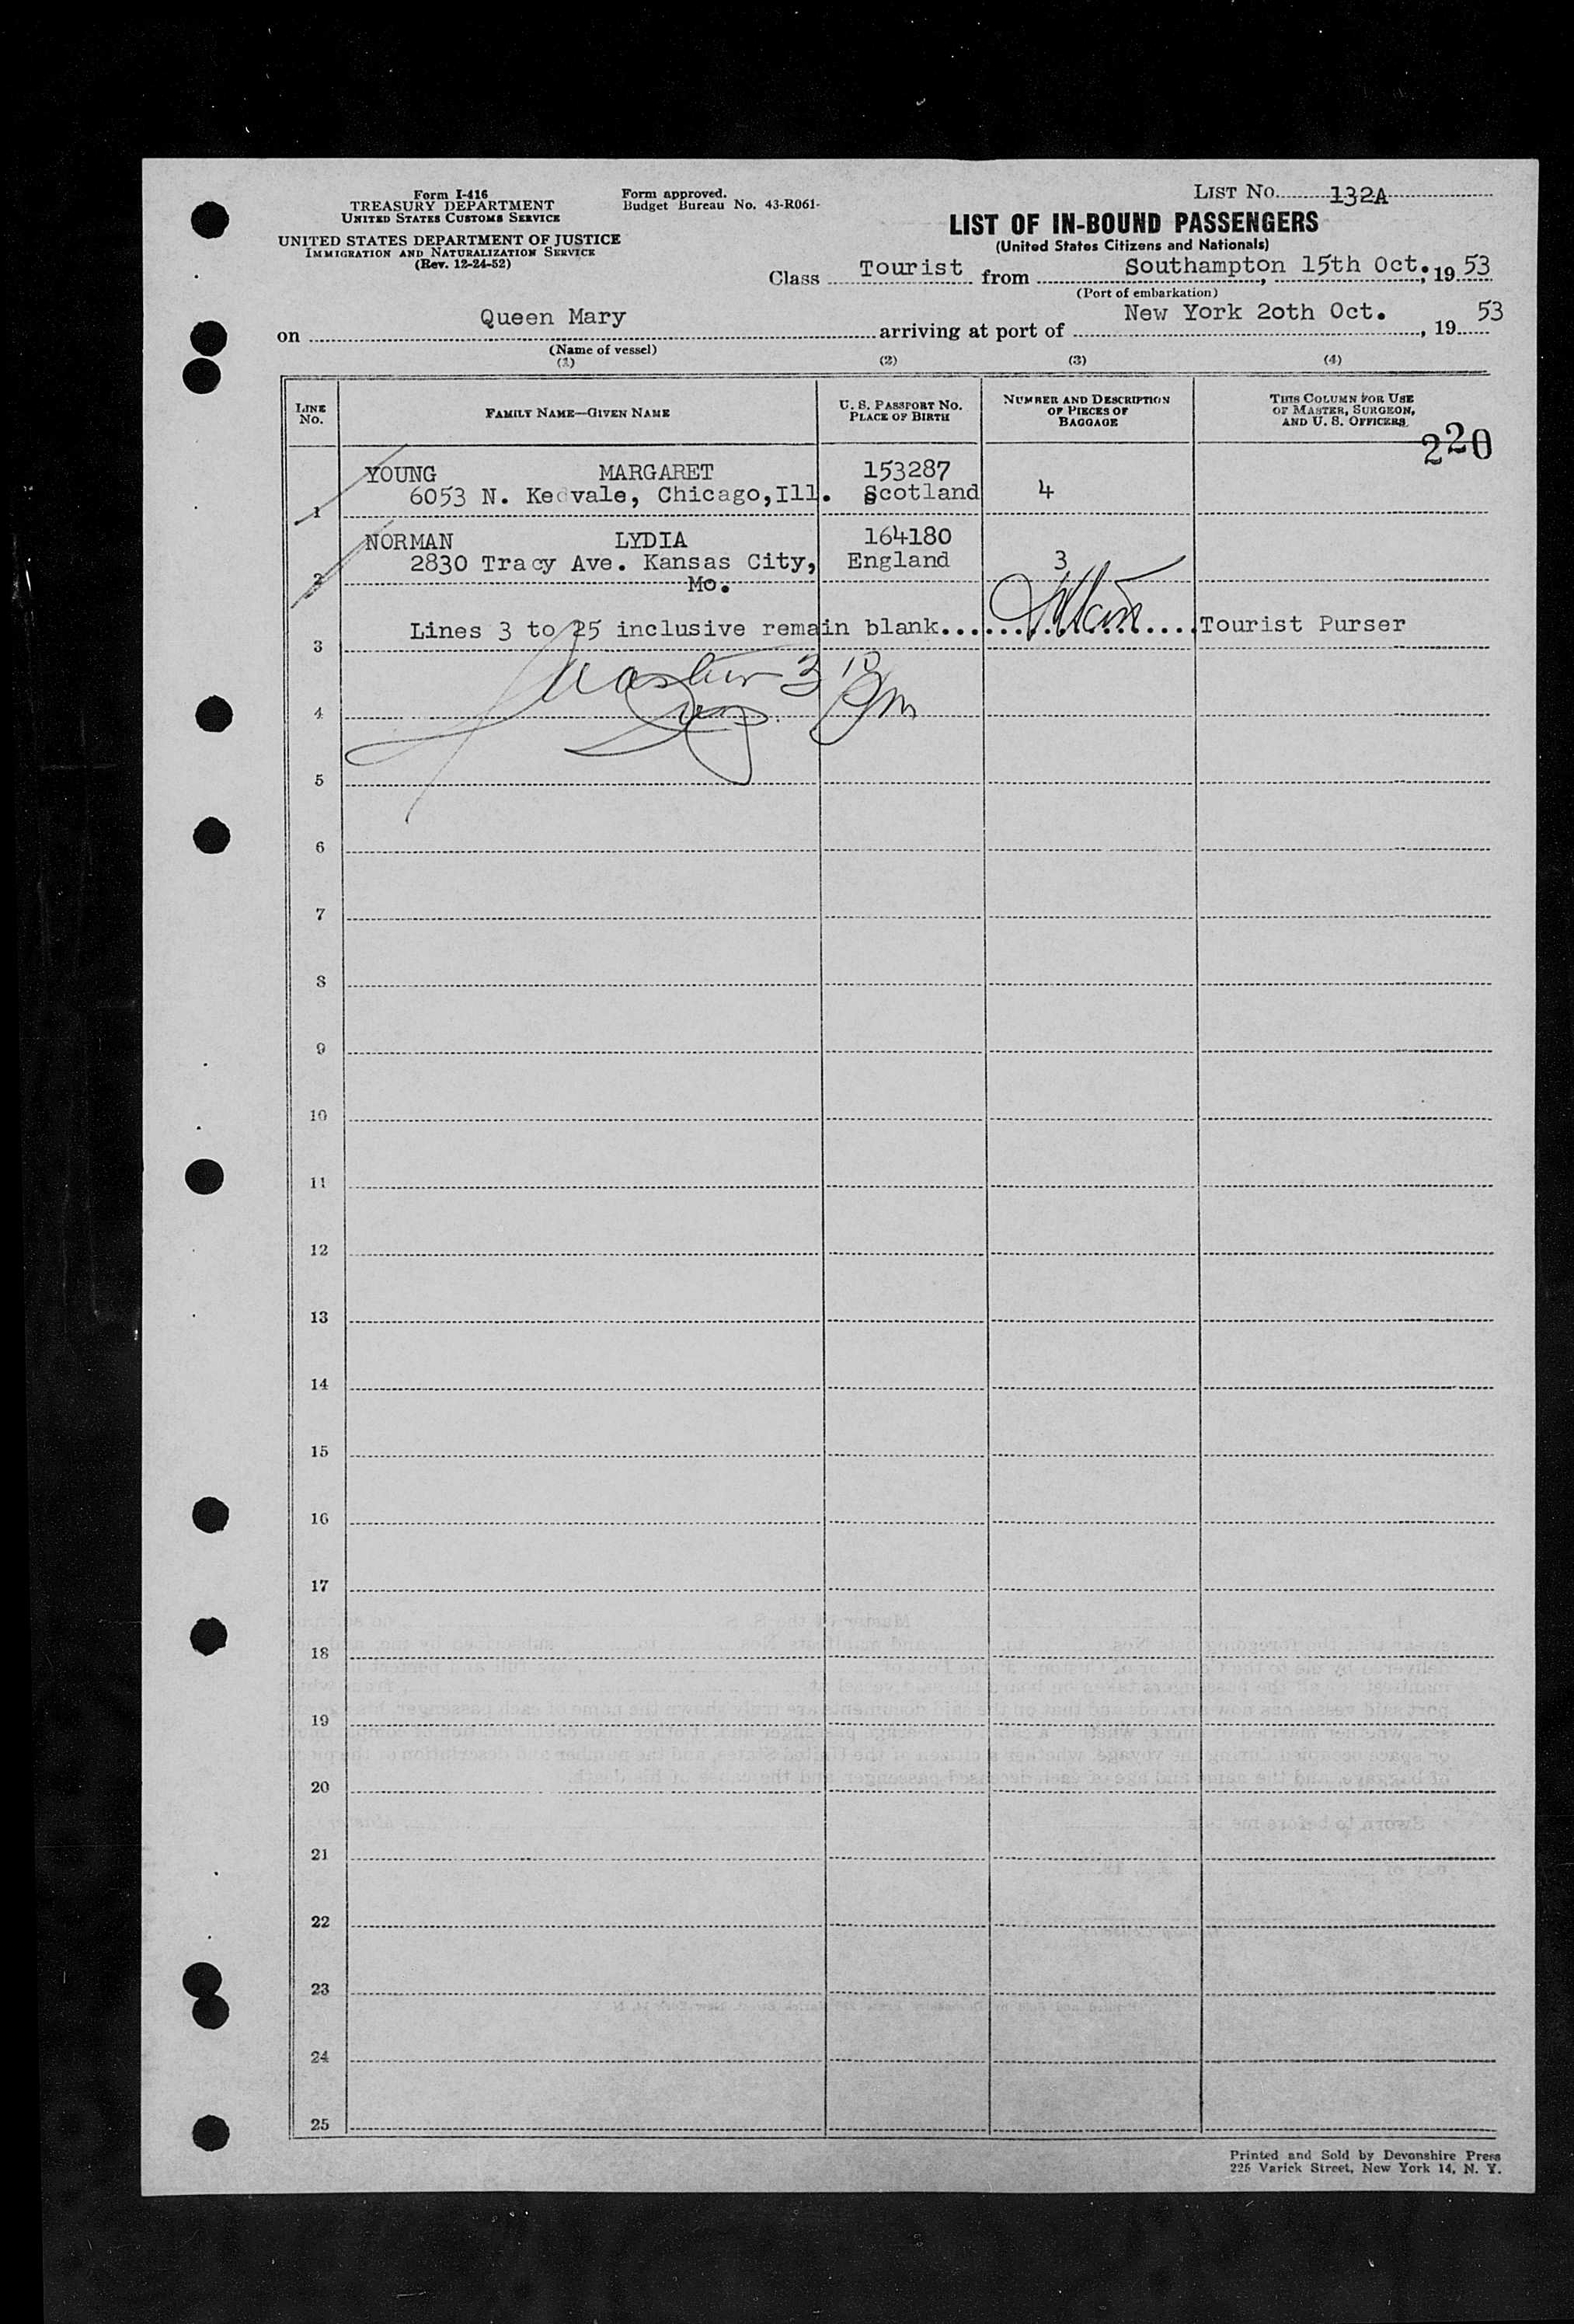 Form I-416
TREASURY DEPARTMENT
UNITED STATES CUSTOMS SERVICE
UNITED STATES DEPARTMENT OF JUSTICE
IMMIGRATION AND NATURALIZATION SERVICE
(Rev. 12-24-52)
Form approved.
Budget Bureau No. 43-R061-
LIST No. 132A
LIST OF IN-BOUND PASSENGERS
(United States Citizens and Nationals)
Class Tourist from Southampton, 15th Oct., 1953
(Port of embarkation)
on Queen Mary arriving at port of New York 20th Oct., 19 53
(Name of vessel)
(1) (2) (3) (4)
LINE No. FAMILY NAME—GIVEN NAME U. S. PASSPORT No. PLACE OF BIRTH NUMBER AND DESCRIPTION OF PIECES OF BAGGAGE THIS COLUMN FOR USE OF MASTER, SURGEON, AND U. S. OFFICERS
220
YOUNG MARGARET 153287
1 6053 N. Kedvale, Chicago, Ill. Scotland 4
NORMAN LYDIA 164180
2 2830 Tracy Ave. Kansas City, England 3
Mo.
3 Lines 3 to 25 inclusive remain blank.................Tourist Purser
4
5
6
7
8
9
10
11
12
13
14
15
16
17
18
19
20
21
22
23
24
25
Printed and Sold by Devonshire Press
225 Varick Street, New York 14, N. Y.